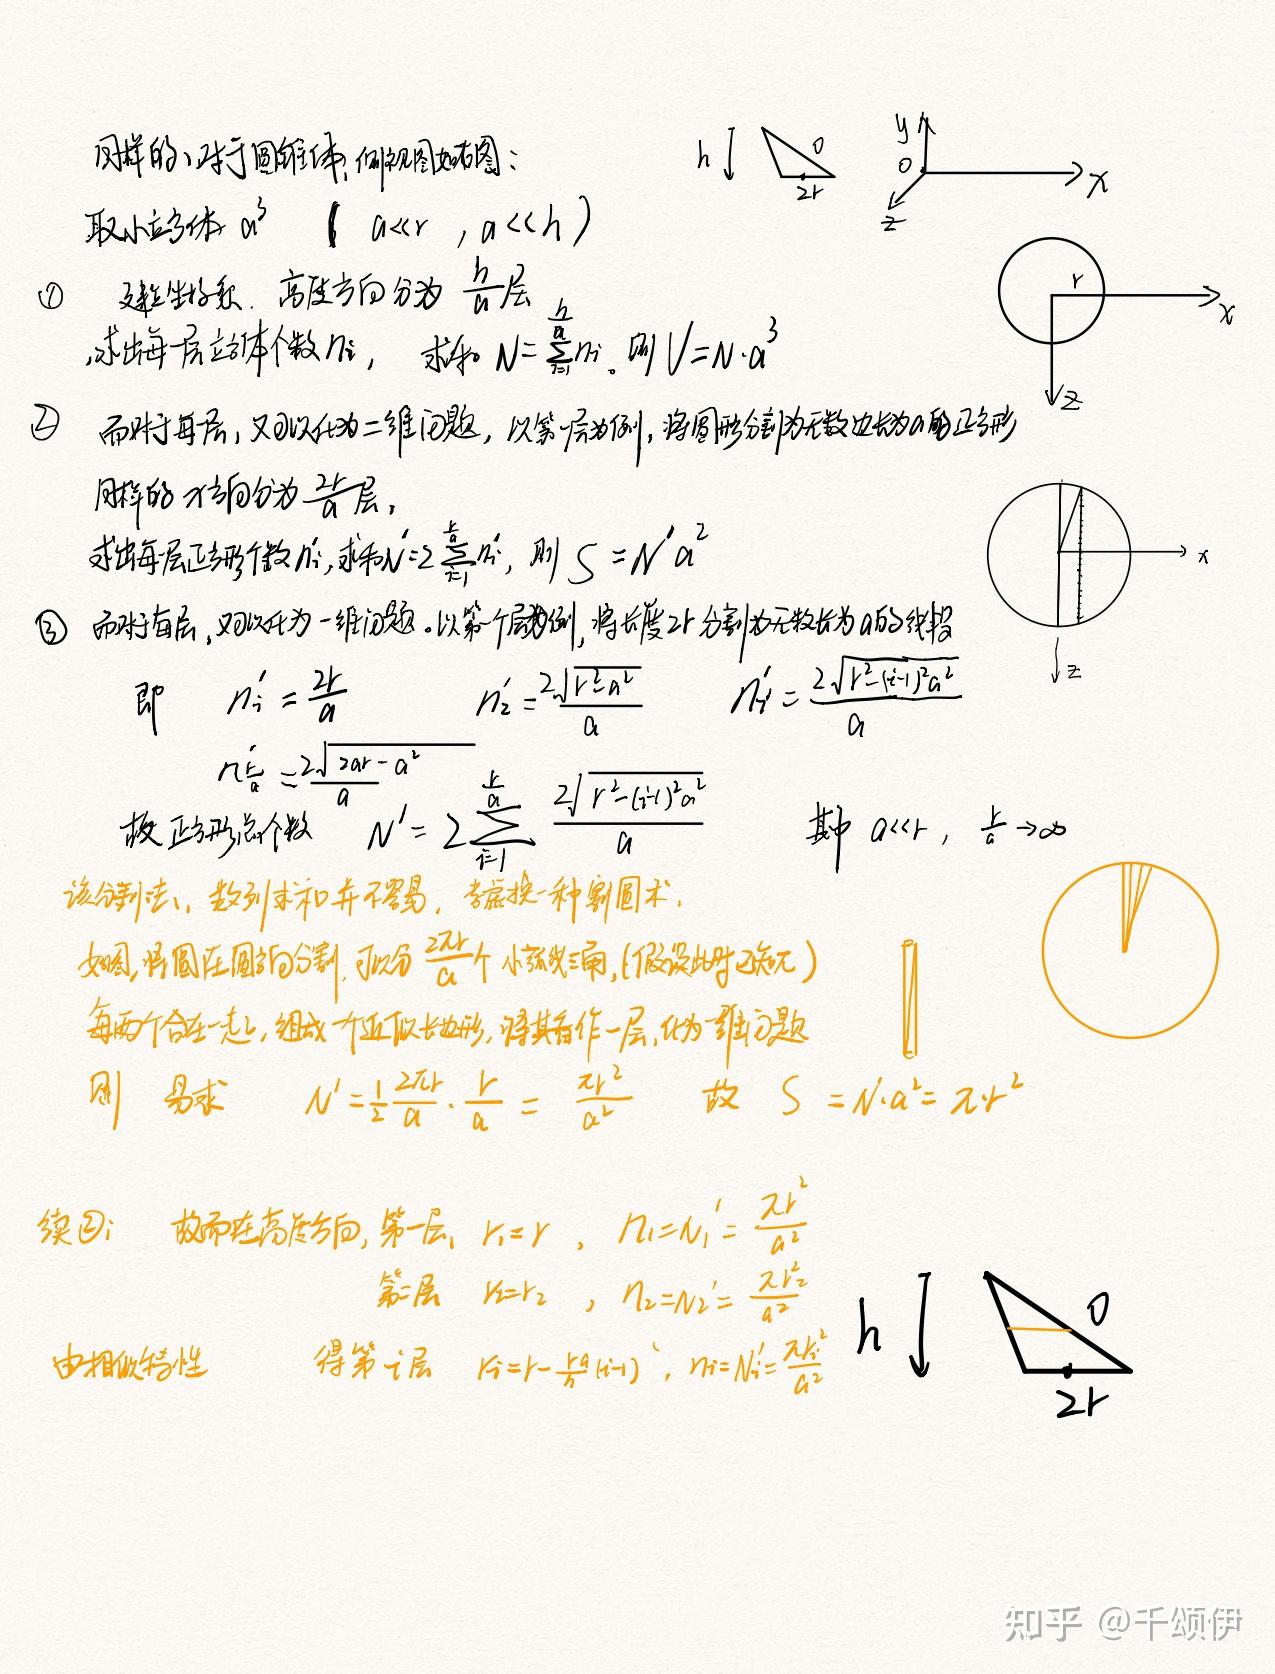 同样的、对于圆锥体,侧视图如右图:
h 2r y o x z
取小立方体 a³ ( a<<r , a<<h )
① 建立坐标系. 高度方向分为 h/a 层
r x z
求出每一层立方体个数 nᵢ, 求和 N=∑_{i=1}^{h/a} nᵢ。则 V=N·a³
② 而对于每层,又可以化为二维问题,以第一层为例,将圆形分割为无数边长为a的正方形
同样的 x方向分为 2r/a 层,
求出每一层正方形个数 nᵢ', 求和N'=2∑_{i=1}^{r/a} nᵢ', 则 S=N'a²
x z
③ 而对于每层,又可以化为一维问题。以第一个层为例,将长度2r分割为无数长为a的线段
即 nᵢ'=2r/a n₂'=2√(r²-a²)/a nᵢ'=2√(r²-(i-1)²a²)/a
n'_{r/a}=2√(2ar-a²)/a
故 正方形总个数 N'=2∑_{i=1}^{r/a} 2√(r²-(i-1)²a²)/a 其中 a<<r, r/a→∞
该分割法、数列求和并不容易,考虑换一种割圆术.
如图,将圆在圆方向分割,可以分 2πr/a 个小弧线三角,(假设此时已知π)
每两个合在一起,组成一个近似长边形,将其看作一层,化为一维问题
则 易求 N'=1/2·2πr/a·r/a=πr²/a² 故 S=N'·a²=π·r²
续②: 故而在高度方向,第一层, r₁=r , n₁=N₁'=πr²/a²
第二层 r₂=r₂ , n₂=N₂'=πr₂²/a²
由相似特性 得第i层 rᵢ=r-ra/h(i-1) , nᵢ=Nᵢ'=πrᵢ²/a²
h 2r
知乎 @千颂伊